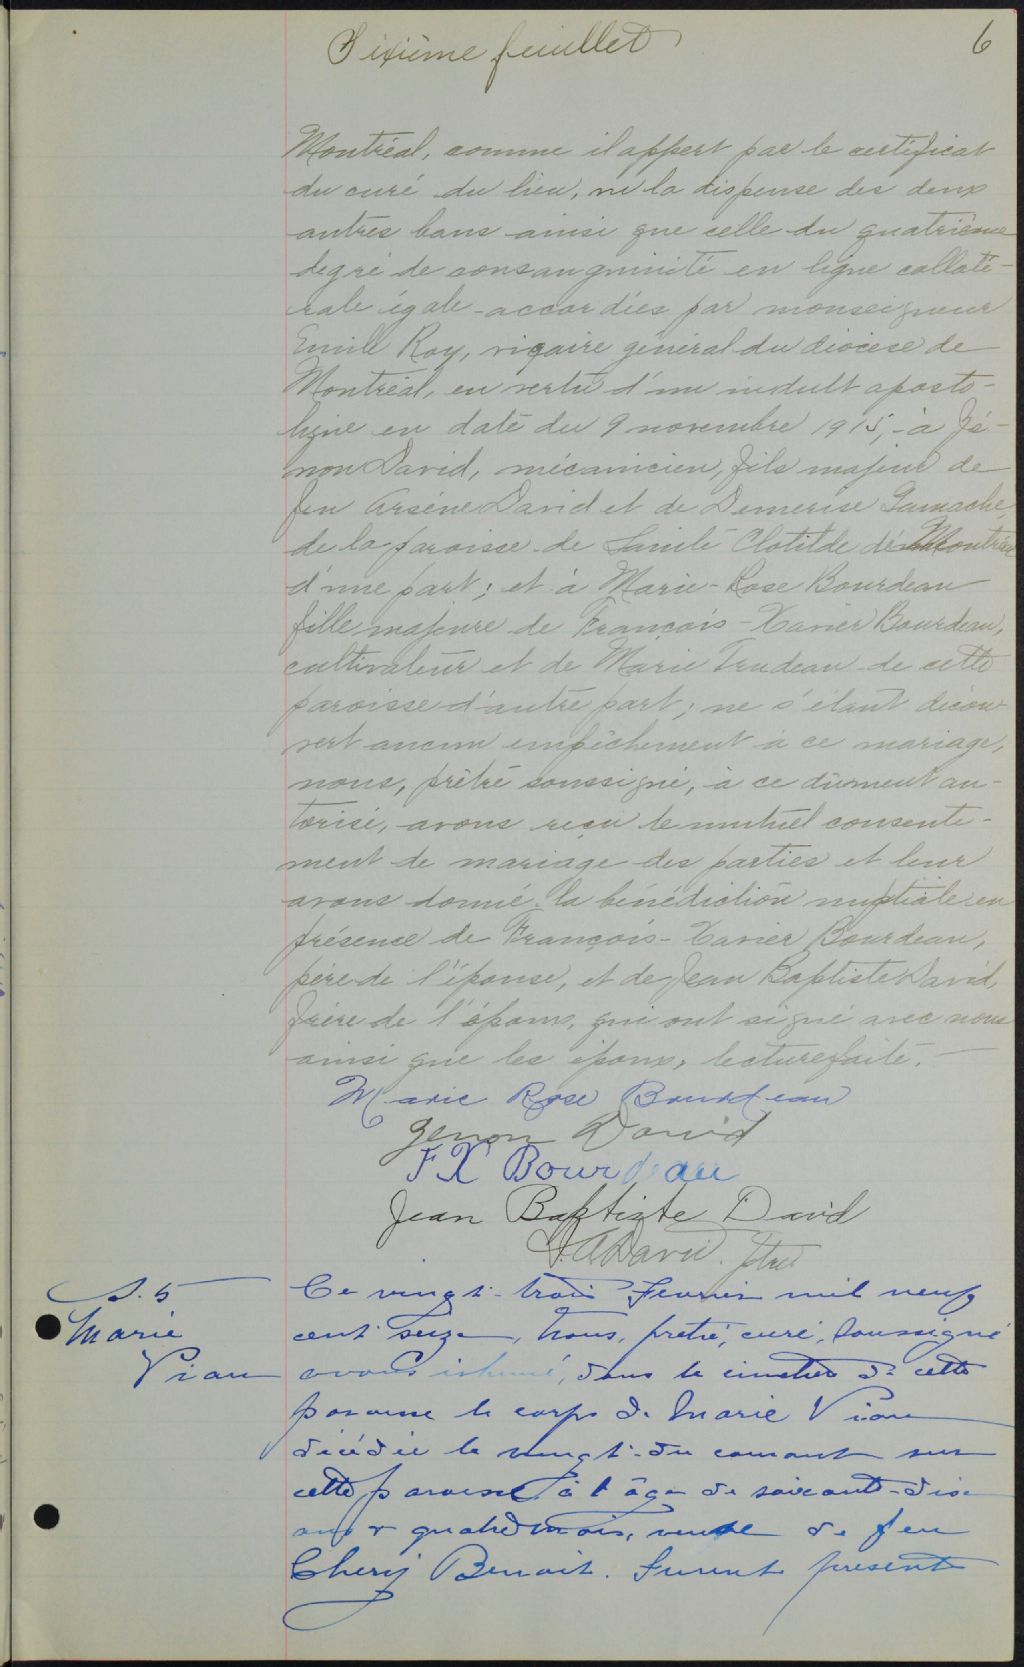 Sixième feuillet
6
Montréal, comme il appert par le certificat
du curé du lieu, vu la dispense des deux
autres bans ainsi que celle du quatrième
degré de consanguinité en ligne collaté-
rale égale accordées par monseigneur
Emile Roy, vicaire général du diocèse de
Montréal, en vertu d'un indult aposto-
lique en date du 9 novembre 1915, à Zé-
non David, mécanicien, fils majeur de
feu Arsène David et de Demerise Gamache
de la paroisse de Sainte Clotilde de Montréal
d'une part; et à Marie-Rose Bourdeau
fille majeure de François-Xavier Bourdeau,
cultivateur et de Marie Trudeau de cette
paroisse d'autre part; ne s'étant décou-
vert aucun empêchement à ce mariage,
nous, prêtre soussigné, à ce dûment au-
torisé, avons reçu le mutuel consente-
ment de mariage des parties et leur
avons donné la bénédiction nuptiale en
présence de François-Xavier Bourdeau,
père de l'épouse, et de Jean Baptiste David,
frère de l'époux, qui ont signé avec nous
ainsi que les époux, lecture faite.
Marie Rose Bourdeau
Zenon David
F X Bourdeau
Jean Baptiste David
J.A David. ptre
S. 5
Marie
Viau
Ce vingt-trois Fevrier mil neuf
cent seize, Nous, prêtre, curé, soussigné
avons inhumé, dans le cimetière de cette
paroisse le corps de Marie Viau
décédée le vingt du courant sur
cette paroisse à l'âge de soixante-dix
ans & quatre mois, veuve de feu
Chery Benoit. Furent présents